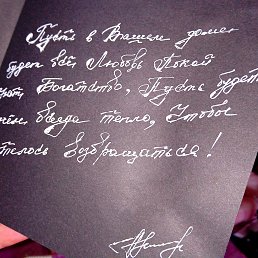 Пусть в Вашем доме
будет всё, Любовь Покой
Богатство, Пусть будет
всегда тепло, Чтобы
возвращаться!